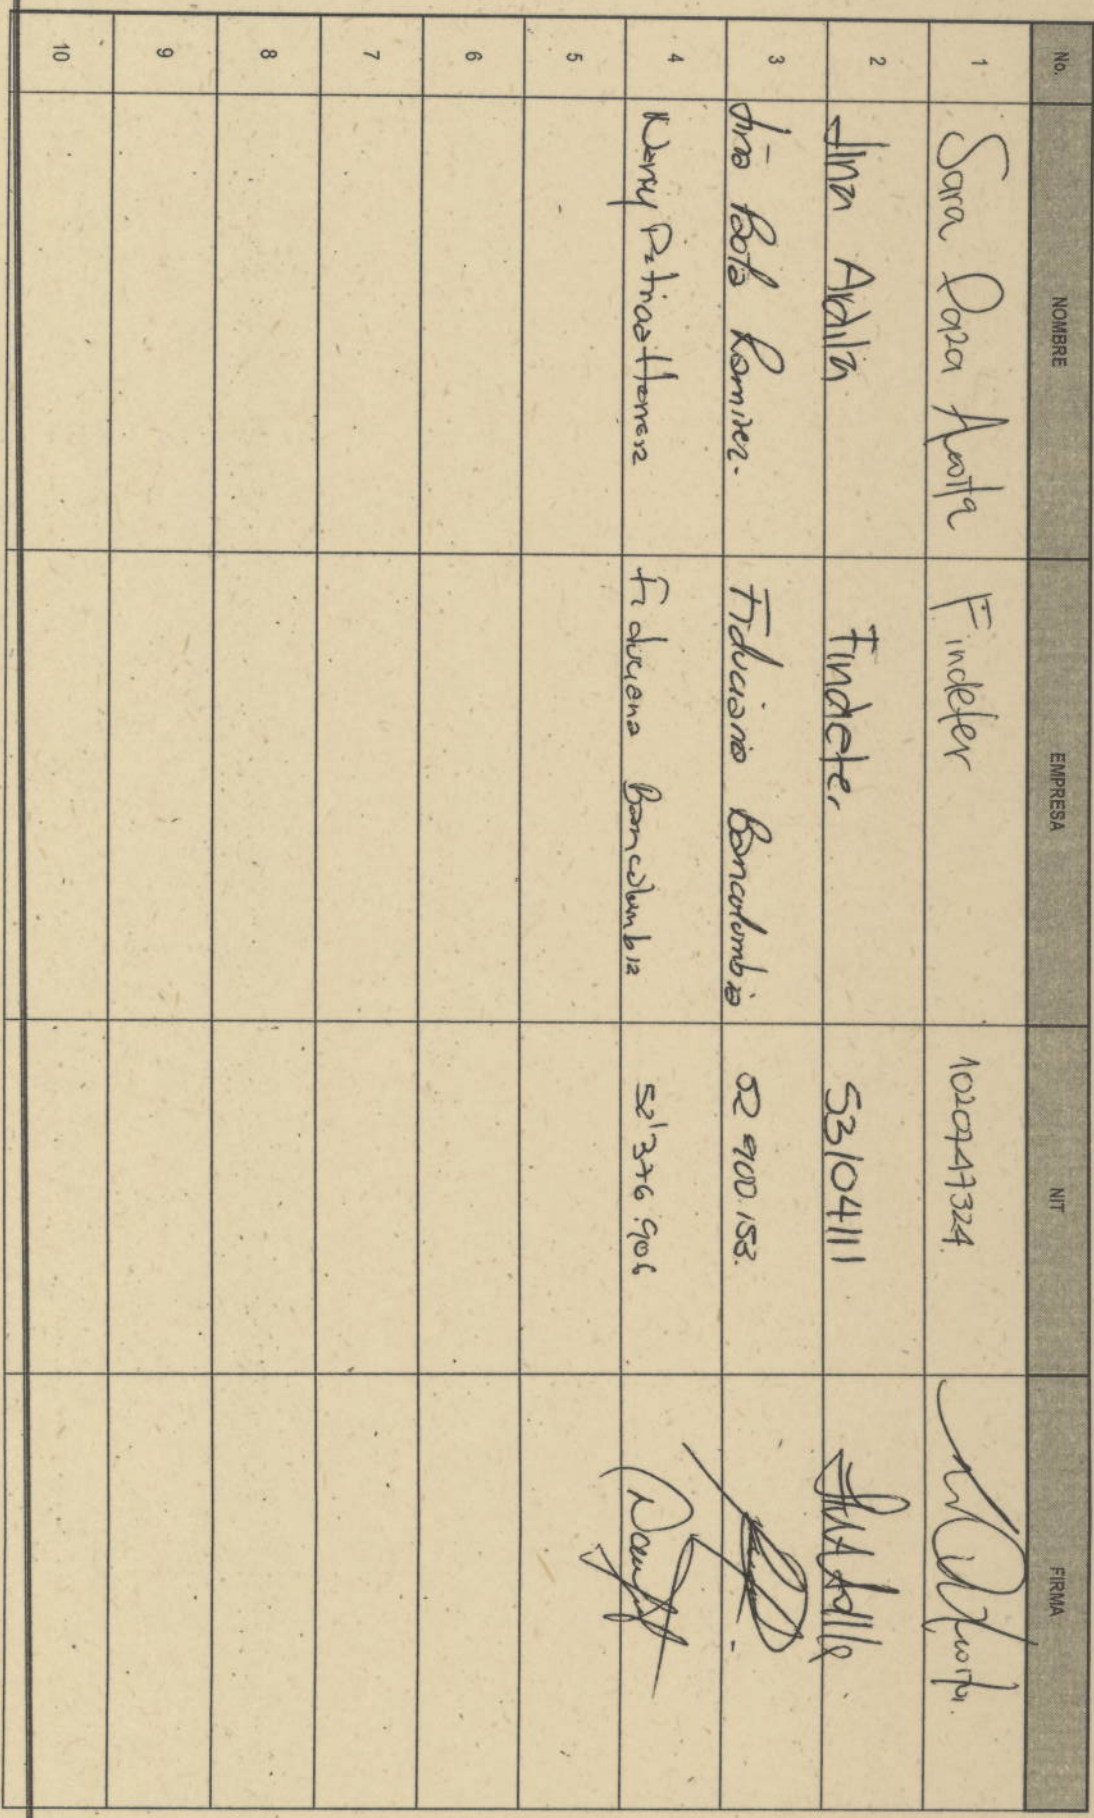 No. NOMBRE EMPRESA NIT FIRMA
1 Sara Daza Acosta Findeter 1020747324.
2 Jina Ardila Findeter 53104111
3 Paola Ramirez. Fiduciaria Bancolombia 52 900.153.
4 Nancy Patricia Herrera Fiduciaria Bancolombia 52'376.906
5
6
7
8
9
10